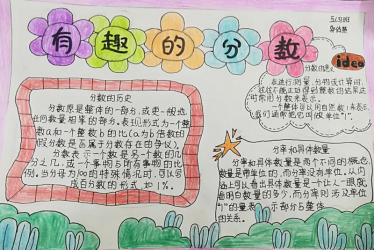 有趣的分数
idea
分数的意义
在进行测量、分物或计算时,
往往不能正好得到整数的结果,这
时常用分数来表示。
一个整体可以用自然数1来表示,
我们通常把它叫做单位"1"
分数的历史
分数原是整体的一部分,或更一般地
任何数量相等的部分。表现形式为一个整
数a和一个整数b的比(a为b倍数的
假分数是否属于分数存在争议)。
分数表示一个数是另一个数的几
分之几,或一个事物与所有事物的比
例。当分母为100的特殊情况时,可以写
成百分数的形式如1%。
分率和具体数量
分率和具体数量是两个不同的概念
数量是带单位的,而分率没有单位。从内
上可以看出具体数量是一个让人一眼就
看明白数量的多少,而分率则涉及单位
"1"的量表示部分与整体
的关系。